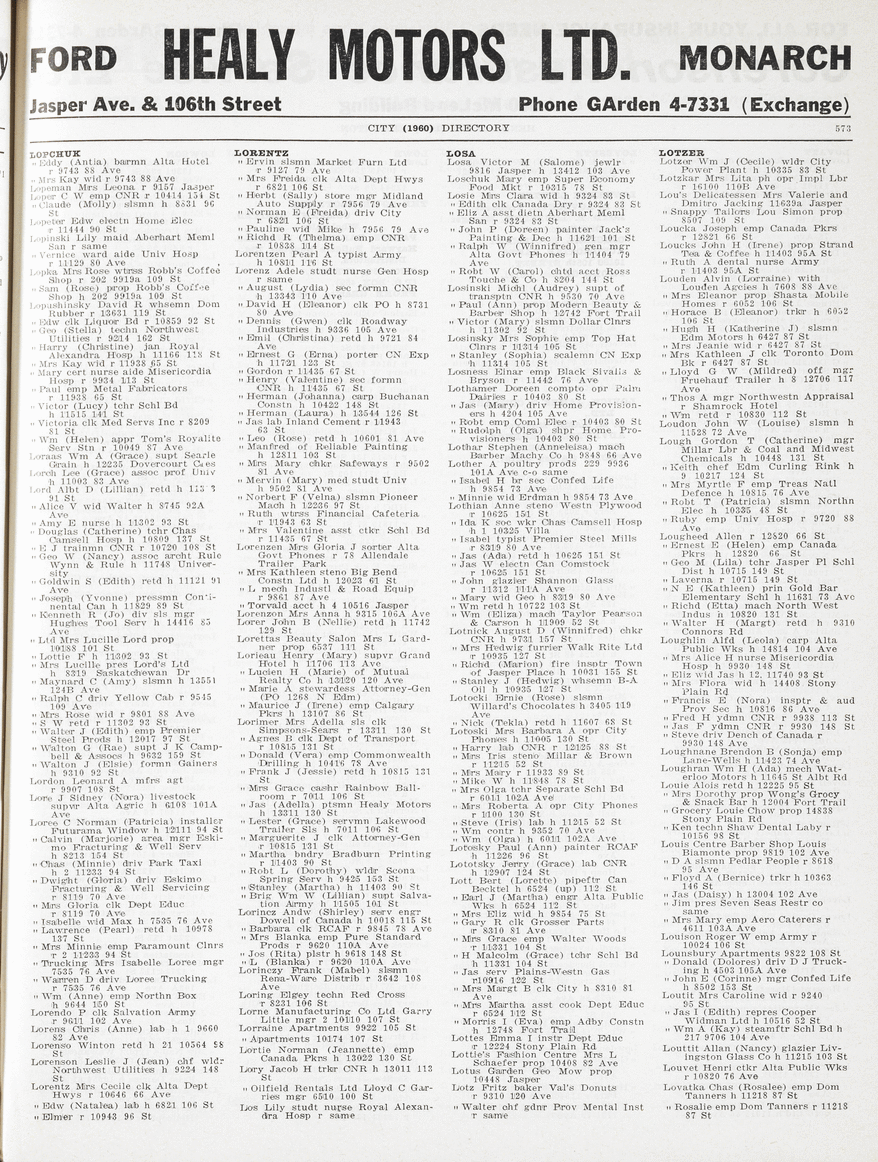 FORD HEALY MOTORS LTD. MONARCH
Jasper Ave. & 106th Street Phone GArden 4-7331 (Exchange)
CITY (1960) DIRECTORY 573
LOPCHUK
" Eddy (Antia) barmn Alta Hotel
r 9743 88 Ave
" Mrs Kay wid r 9743 88 Ave
Lopeman Mrs Leona r 9157 Jasper
Loper C W emp CNR r 10414 154 St
" Claude (Molly) slsmn h 8531 96
St
Lopeter Edw electn Home Elec
r 11444 90 St
Lopinski Lily maid Aberhart Meml
San r same
" Vernice ward aide Univ Hosp
r 11129 80 Ave
Lopka Mrs Rose wtrss Robb's Coffee
Shop r 202 9919a 109 St
" Sam (Rose) prop Robb's Coffee
Shop h 202 9919a 109 St
Lopushinsky David R whsemn Dom
Rubber r 13631 119 St
" Edw clk Liquor Bd r 10859 92 St
" Geo (Stella) techn Northwest
Utilities r 9214 162 St
" Harry (Christina) jan Royal
Alexandra Hosp h 11166 118 St
" Mrs Kay wid r 11938 65 St
" Mary cert nurse aide Misericordia
Hosp r 9934 113 St
" Paul emp Metal Fabricators
r 11938 65 St
" Victor (Lucy) tchr Schl Bd
h 11515 141 St
" Victoria clk Med Servs Inc r 8209
81 St
" Wm (Helen) appr Tom's Royalite
Serv Stn r 10049 87 Ave
Loraas Wm A (Grace) supt Searle
Grain h 12235 Dovercourt
Lorch Lee (Grace) assoc prof Univ
h 11003 83 Ave
Lord Albt D (Lillian) retd h
91 St
" Alice V wid Walter h 8745 92A
Ave
" Amy E nurse h 11302 93 St
" Douglas (Catherine) tchr Chas
Camsell Hosp h 10809 137 St
" E J trainmn CNR r 10720 108 St
" Geo W (Nancy) assoc archt Rule
Wynn & Rule h 11748 Univer-
sity
" Goldwin S (Edith) retd h 11121 91
Ave
" Joseph (Yvonne) pressmn Conti-
nental Can h 11829 89 St
" Kenneth R (Jo) div sls mgr
Hughes Tool Serv h 14416 85
Ave
" Ltd Mrs Lucille Lord prop
10188 101 St
" Lottie F h 11302 93 St
" Mrs Lucille pres Lord's Ltd
h 8319 Saskatchewan Dr
" Maynard C (Amy) slsmn h 13551
124B Ave
" Ralph C driv Yellow Cab r 9545
109 Ave
" Mrs Rose wid r 9801 88 Ave
" S W retd r 11302 93 St
" Walter J (Edith) emp Premier
Steel Prods h 12017 97 St
" Walton G (Rac) supt J K Camp-
bell & Assocs h 9632 159 St
" Walton J (Elsie) formn Gainers
h 9310 92 St
Lordon Leonard A mfrs agt
r 9907 108 St
Lore J Sidney (Nora) livestock
supvr Alta Agric h 6108 101A
Ave
Loree C Norman (Patricia) installer
Futurama Window h 12111 94 St
" Calvin (Marjorie) area mgr Eski-
mo Fracturing & Well Serv
h 8213 154 St
" Chas (Minnie) driv Park Taxi
h 2 11233 94 St
" Dwight (Gloria) driv Eskimo
Fracturing & Well Servicing
r 8119 70 Ave
" Mrs Gloria clk Dept Educ
r 8119 70 Ave
" Isabelle wid Max h 7535 76 Ave
" Lawrence (Pearl) retd h 10978
137 St
" Mrs Minnie emp Paramount Clnrs
r 2 11233 94 St
" Trucking Mrs Isabelle Loree mgr
7535 76 Ave
" Warren D driv Loree Trucking
r 7535 76 Ave
" Wm (Anne) emp Northn Box
h 9644 150 St
Lorendo P clk Salvation Army
r 9611 102 Ave
Lorens Chris (Anne) lab h 1 9660
82 Ave
Lorenso Winton retd h 21 10564 98
St
Lorenson Leslie J (Jean) chf wldr
Northwest Utilities h 9224 148
St
Lorentz Mrs Cecile clk Alta Dept
Hwys r 10646 66 Ave
" Edw (Natalea) lab h 6821 106 St
" Elmer r 10943 96 St
LORENTZ
" Ervin slsmn Market Furn Ltd
r 9127 79 Ave
" Mrs Freida clk Alta Dept Hwys
r 6821 106 St
" Herbt (Sally) store mgr Midland
Auto Supply r 7956 79 Ave
" Norman E (Freida) driv City
r 6821 106 St
" Pauline wid Mike h 7956 79 Ave
" Richd R (Thelma) emp CNR
r 10838 114 St
Lorentzen Pearl A typist Army
h 10811 116 St
Lorenz Adele studt nurse Gen Hosp
r same
" August (Lydia) sec formn CNR
h 13343 110 Ave
" David H (Eleanor) clk PO h 8731
80 Ave
" Dennis (Gwen) clk Roadway
Industries h 9336 105 Ave
" Emil (Christina) retd h 9721 84
Ave
" Ernest G (Erna) porter CN Exp
h 11721 123 St
" Gordon r 11435 67 St
" Henry (Valentine) sec formn
CNR h 11435 67 St
" Herman (Johanna) carp Buchanan
Constn h 10422 148 St
" Herman (Laura) h 13544 126 St
" Jas lab Inland Cement r 11943
63 St
" Leo (Rose) retd h 10601 81 Ave
" Manfred of Reliable Painting
h 12811 103 St
" Mrs Mary chkr Safeways r 9502
81 Ave
" Mervin (Mary) med studt Univ
h 9502 81 Ave
" Norbert F (Velna) slsmn Pioneer
Mach h 12236 97 St
" Ruth wtrss Financial Cafeteria
r 11943 63 St
" Mrs Valentine asst ctkr Schl Bd
r 11435 67 St
Lorenzen Mrs Gloria J sorter Alta
Govt Phones r 78 Allendale
Trailer Park
" Mrs Kathleen steno Big Bend
Constn Ltd h 12023 61 St
" L mech Industl & Road Equip
r 9861 87 Ave
" Torvald acct h 4 10516 Jasper
Lorenzon Mrs Anna h 9315 106A Ave
Lorer John B (Nellie) retd h 11742
129 St
Lorettas Beauty Salon Mrs L Gard-
ner prop 6537 111 St
Lorieau Henry (Mary) supvr Grand
Hotel h 11706 113 Ave
" Lucien H (Marie) of Mutual
Realty Co h 13120 120 Ave
" Marie A stewardess Attorney-Gen
(PO 1268 N Edm)
" Maurice J (Irene) emp Calgary
Pkrs h 13107 86 St
Lorimer Mrs Adella sls clk
Simpsons-Sears r 13311 130 St
" Agnes B clk Dept of Transport
r 10815 131 St
" Donald (Vera) emp Commonwealth
Drilling h 10416 78 Ave
" Frank J (Jessie) retd h 10815 131
St
" Mrs Grace cashr Rainbow Ball-
room r 7011 106 St
" Jas (Adella) ptsmn Healy Motors
h 13311 130 St
" Lester (Grace) servmn Lakewood
Trailer Sls h 7011 106 St
" Marguerite J clk Attorney-Gen
r 10815 131 St
" Martha bndry Bradburn Printing
r 11403 90 St
" Robt L (Dorothy) wldr Scona
Spring Serv h 9425 153 St
" Stanley (Martha) h 11403 90 St
" Brig Wm W (Lillian) supt Salva-
tion Army h 11505 101 St
Lorincz Andw (Shirley) serv engr
Dowell of Canada h 10018 115 St
" Barbara clk RCAF r 9845 78 Ave
" Mrs Blanka emp Pure Standard
Prods r 9620 110A Ave
" Jos (Rita) plstr h 9618 148 St
" L (Blanka) r 9620 110A Ave
Lorinczy Frank (Mabel) slsmn
Rena-Ware Distrib r 3642 108
Ave
Loring Elgey techn Red Cross
r 8231 106 St
Lorne Manufacturing Co Ltd Garry
Little mgr 2 10110 107 St
Lorraine Apartments 9922 105 St
" Apartments 10174 107 St
Lortie Norman (Jeannette) emp
Canada Pkrs h 13022 130 St
Lory Jacob H trkr CNR h 13011 113
St
" Oilfield Rentals Ltd Lloyd C Gar-
ries mgr 6510 100 St
Los Lily studt nurse Royal Alexan-
dra Hosp r same
LOSA
Losa Victor M (Salome) jewlr
9816 Jasper h 13412 103 Ave
Loschuk Mary emp Super Economy
Food Mkt r 10315 78 St
Losie Mrs Clara wid h 9324 83 St
" Edith clk Canada Dry r 9324 83 St
" Eliz A asst dietn Aberhart Meml
San r 9324 83 St
" John P (Doreen) painter Jack's
Painting & Dec h 11621 101 St
" Ralph W (Winnifred) gen mgr
Alta Govt Phones h 11404 79
Ave
" Robt W (Carol) chtd acct Ross
Touche & Co h 8204 144 St
Losinski Michl (Audrey) supt of
transptn CNR h 9530 70 Ave
" Paul (Ann) prop Modern Beauty &
Barber Shop h 12742 Fort Trail
" Victor (Mary) slsmn Dollar Clnrs
h 11302 92 St
Losinsky Mrs Sophie emp Top Hat
Clnrs r 11314 105 St
" Stanley (Sophia) scalemn CN Exp
h 11314 105 St
Losness Einar emp Black Sivalls &
Bryson r 11442 76 Ave
Lothamer Doreen compto opr Palm
Dairies r 10403 80 St
" Jas (Mary) driv Home Provision-
ers h 4204 105 Ave
" Robt emp Coml Elec r 10403 80 St
" Rudolph (Olga) shpr Home Pro-
visioners h 10403 80 St
Lothar Stephen (Anneleisa) mach
Barber Machy Co h 9848 66 Ave
Lother A poultry prods 229 9936
101A Ave c-o same
" Isabel H br sec Confed Life
h 9854 73 Ave
" Minnie wid Erdman h 9854 73 Ave
Lothian Anne steno Westn Plywood
r 10625 151 St
" Ida K soc wkr Chas Camsell Hosp
h 1 10325 Villa
" Isabel typist Premier Steel Mills
r 8319 80 Ave
" Jas (Ada) retd h 10625 151 St
" Jas W electn Can Comstock
r 10625 151 St
" John glazier Shannon Glass
r 11312 111A Ave
" Mary wid Geo h 8319 80 Ave
" Wm retd h 10722 103 St
" Wm (Eliza) mach Taylor Pearson
& Carson h 11909 52 St
Lotnick August D (Winnifred) chkr
CNR h 9731 157 St
" Mrs Hedwig furrier Walk Rite Ltd
r 10935 127 St
" Richd (Marion) fire insptr Town
of Jasper Place h 10031 155 St
" Stanley J (Hedwig) whsemn B-A
Oil h 10935 127 St
Lotocki Ernie (Rose) slsmn
Willard's Chocolates h 3405 119
Ave
" Nick (Tekla) retd h 11607 68 St
Lotoski Mrs Barbara A opr City
Phones h 11005 130 St
" Harry lab CNR r 12125 88 St
" Mrs Iris steno Millar & Brown
r 11215 52 St
" Mrs Mary r 11933 89 St
" Mike W h 11848 78 St
" Mrs Olga tchr Separate Schl Bd
r 6011 102A Ave
" Mrs Roberta A opr City Phones
r 1100 130 St
" Steve (Iris) lab h 11215 52 St
" Wm contr h 9352 70 Ave
" Wm (Olga) h 6011 102A Ave
Lotosky Paul (Ann) painter RCAF
h 11226 96 St
Lototsky Jerry (Grace) lab CNR
h 12907 124 St
Lott Bert (Lorette) pipeftr Can
Becktel h 6524 (up) 112 St
" Earl J (Martha) engr Alta Public
Wks h 6524 112 St
" Mrs Eliz wid h 9854 75 St
" Gary R clk Grosser Parts
r 8310 81 Ave
" Mrs Grace emp Walter Woods
r 11331 104 St
" H Malcolm (Grace) tchr Schl Bd
h 11331 104 St
" Jas serv Plains-Westn Gas
r10916 122 St
" Mrs Margt B clk City h 8310 81
Ave
" Mrs Martha asst cook Dept Educ
r 6524 112 St
" Morris I (Eva) emp Adby Constn
h 12748 Fort Trail
Lottes Emma I instr Dept Educ
r 12224 Stony Plain Rd
Lottie's Fashion Centre Mrs L
Schaefer prop 10408 82 Ave
Lotus Garden Geo Mow prop
10448 Jasper
Lotz Fritz baker Val's Donuts
r 9310 120 Ave
" Walter chf gdnr Prov Mental Inst
r same
LOTZER
Lotzer Wm J (Cecile) wldr City
Power Plant h 10335 83 St
Lotzkar Mrs Lita ph opr Impl Lbr
r 16100 110B Ave
Lou's Delicatessen Mrs Valerie and
Dmitro Jacking 11639a Jasper
" Snappy Tailors Lou Simon prop
8507 109 St
Loucka Joseph emp Canada Pkrs
r 12821 66 St
Loucks John H (Irene) prop Strand
Tea & Coffee h 11403 95A St
" Ruth A dental nurse Army
r 11403 95A St
Louden Alvin (Lorraine) with
Louden Agcies h 7608 88 Ave
" Mrs Eleanor prop Shasta Mobile
Homes r 6052 106 St
" Horace B (Eleanor) trkr h 6052
106 St
" Hugh H (Katherine J) slsmn
Edm Motors h 6427 87 St
" Mrs Jeanie wid r 6427 87 St
" Mrs Kathleen J clk Toronto Dom
Bk r 6427 87 St
" Lloyd G W (Mildred) off mgr
Fruehauf Trailer h 8 12706 117
Ave
" Thos A mgr Northwestn Appraisal
r Shamrock Hotel
" Wm retd r 10830 112 St
Loudon John W (Louise) slsmn h
11528 72 Ave
Lough Gordon T (Catherine) mgr
Millar Lbr & Coal and Midwest
Chemicals h 10448 131 St
" Keith chef Edm Curling Rink h
9 10217 124 St
" Mrs Myrtle F emp Treas Natl
Defence h 10815 76 Ave
" Robt T (Patricia) slsmn Northn
Elec h 10335 48 St
" Ruby emp Univ Hosp r 9720 88
Ave
Lougheed Allen r 12820 66 St
" Ernest E (Helen) emp Canada
Pkrs h 12820 66 St
" Geo M (Lila) tchr Jasper Pl Schl
Dist h 10715 149 St
" Laverna r 10715 149 St
" N E (Kathleen) prin Gold Bar
Elementary Schl h 11631 73 Ave
" Richd (Etta) mach North West
Indus h 10820 131 St
" Walter H (Margt) retd h 9310
Connors Rd
Loughlin Alfd (Leola) carp Alta
Public Wks h 14814 104 Ave
" Mrs Alice H nurse Misericordia
Hosp h 9930 148 St
" Eliz wid Jas h 12, 11740 93 St
" Mrs Flora wid h 14408 Stony
Plain Rd
" Francis E (Nora) insptr & aud
Prov Sec h 10816 86 Ave
" Fred H ydmn CNR r 9938 113 St
" Jas F ydmn CNR r 9930 148 St
" Steve driv Dench of Canada r
9930 148 Ave
Loughnane Brendan B (Sonja) emp
Lane-Wells h 11423 74 Ave
Loughran Wm H (Ada) mech Wat-
erloo Motors h 11645 Albt Rd
Louie Alois retd h 12225 95 St
" Mrs Dorothy prop Wong's Grocy
& Snack Bar h 12004 Fort Trail
" Grocery Louie Chow prop 14838
Stony Plain Rd
" Ken techn Shaw Dental Laby r
10156 98 St
Louis Centre Barber Shop Louis
Biamonte prop 9819 102 Ave
" D A slsmn Pedlar People r 8618
95 Ave
" Floyd A (Bernice) trkr h 10363
146 St
" Jas (Daisy) h 13004 102 Ave
" Jim pres Seven Seas Restr co
same
" Mrs Mary emp Aero Caterers r
4611 103A Ave
Louison Roger W emp Army r
10024 106 St
Lounsbury Apartments 9822 108 St
" Donald (Dolores) driv D J Truck-
ing h 4503 105A Ave
" John E (Corinne) mgr Confed Life
h 8502 153 St
Loutit Mrs Caroline wid r 9240
95 St
" Jas I (Edith) repres Cooper
Widman Ltd h 10516 52 St
" Wm A (Kay) steamftr Schl Bd h
217 9706 104 Ave
Louttit Allan (Nancy) glazier Liv-
ingston Glass Co h 11215 103 St
Louvet Henri ctkr Alta Public Wks
r 10820 76 Ave
Lovatka Chas (Rosalee) emp Dom
Tanners h 11218 87 St
" Rosalie emp Dom Tanners r 11218
87 St